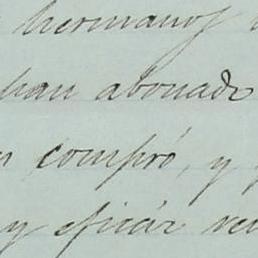 hermanos
han abonado
compró, y
y eficáz